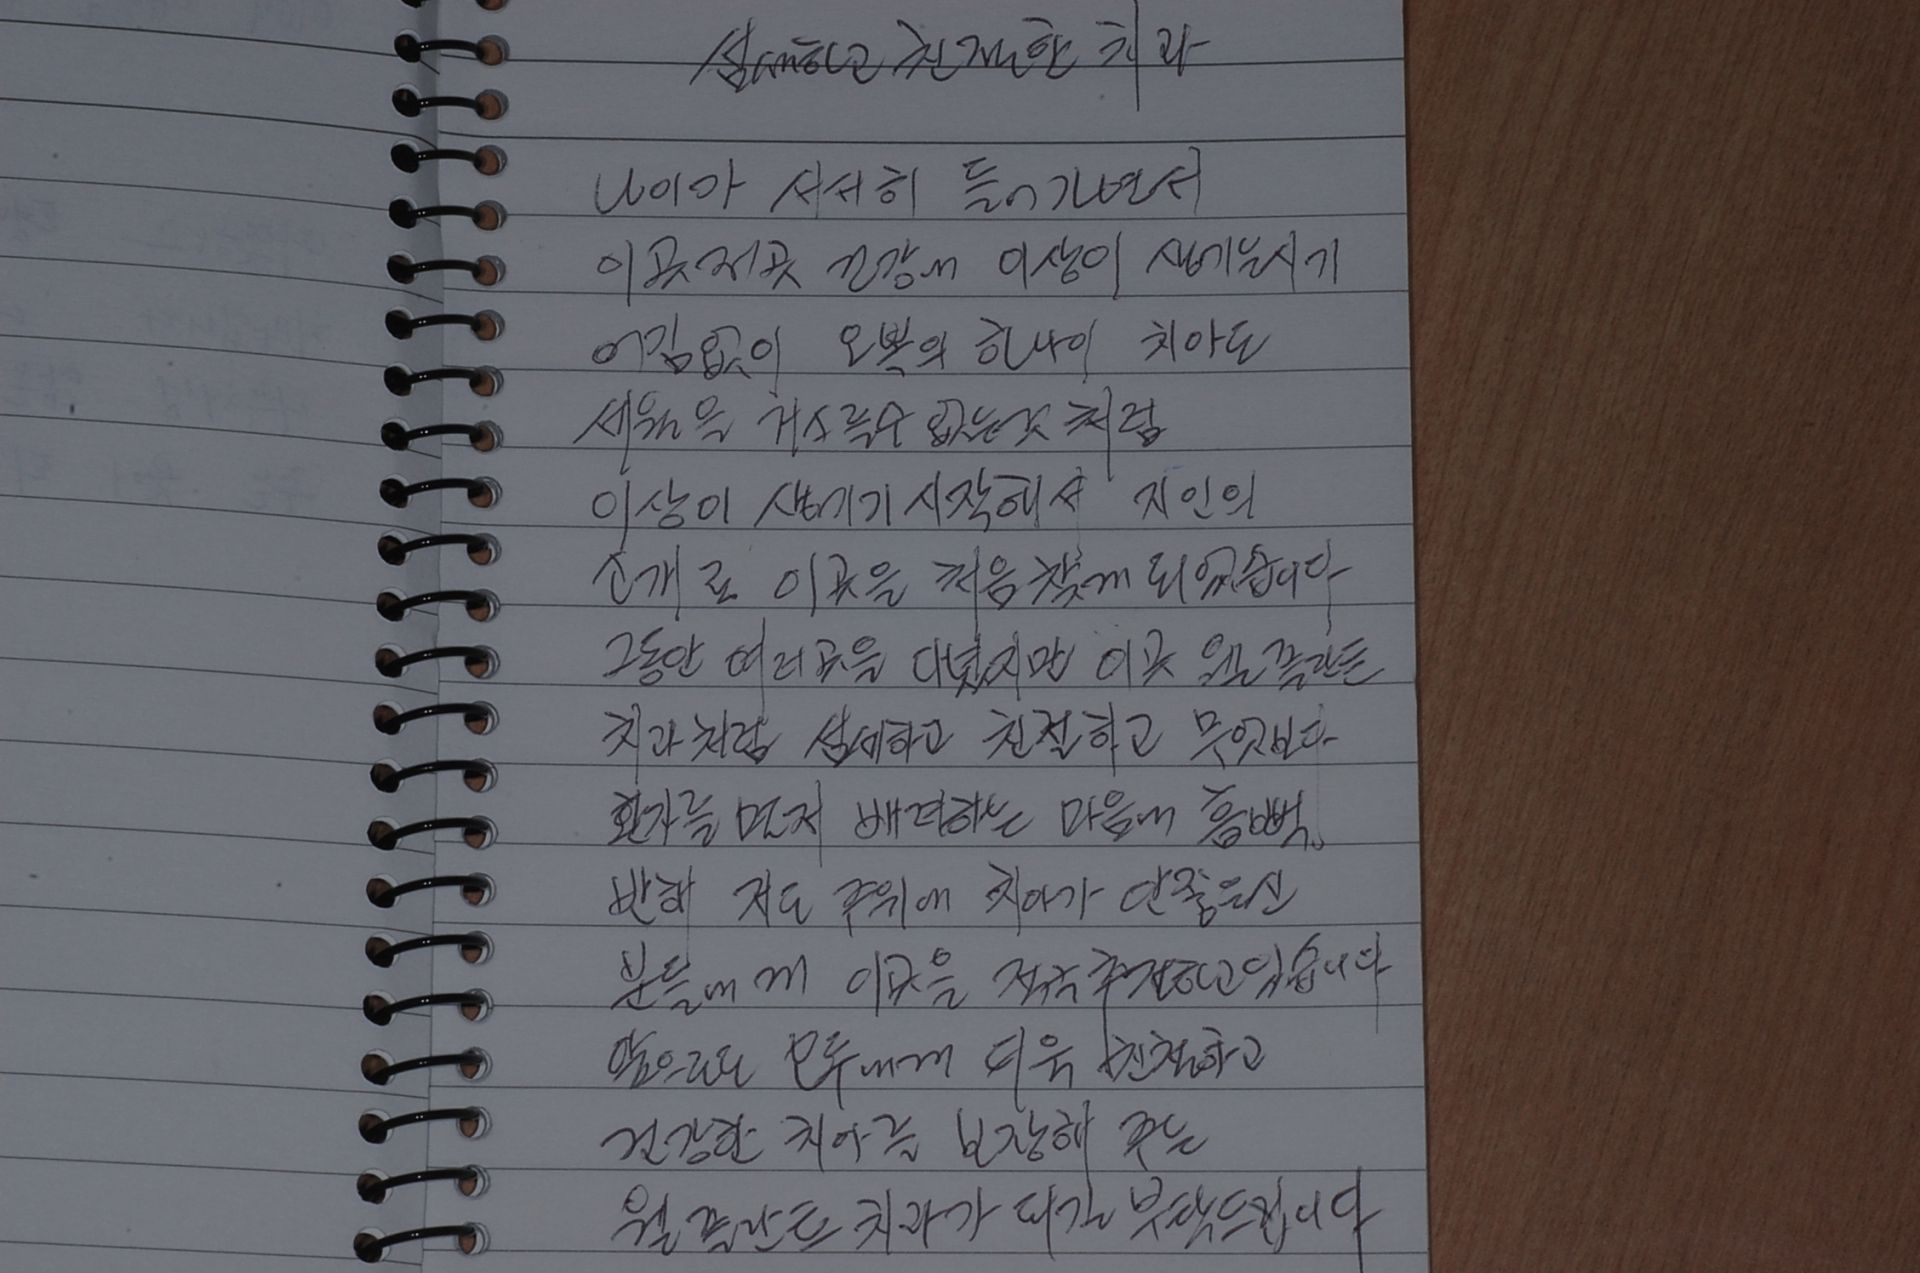 섬세하고 친절한 치과
나이가 서서히 들어가면서
이곳저곳 건강에 이상이 생기는시기
어김없이 오복의 하나인 치아도
세월을 거스를수 없는것 처럼
이상이 생기기 시작해서 지인의
소개로 이곳을 처음 찾게 되었습니다
그동안 여러곳을 다녔지만 이곳 월플란트
치과처럼 섬세하고 친절하고 무엇보다
환자를 먼저 배려하는 마음에 흠뻑
반해 저도 주위에 치아가 안좋으신
분들에게 이곳을 적극추천하고있습니다
앞으로도 모두에게 더욱 친절하고
건강한 치아를 보장해 주는
월플란트 치과가 되길 부탁드립니다